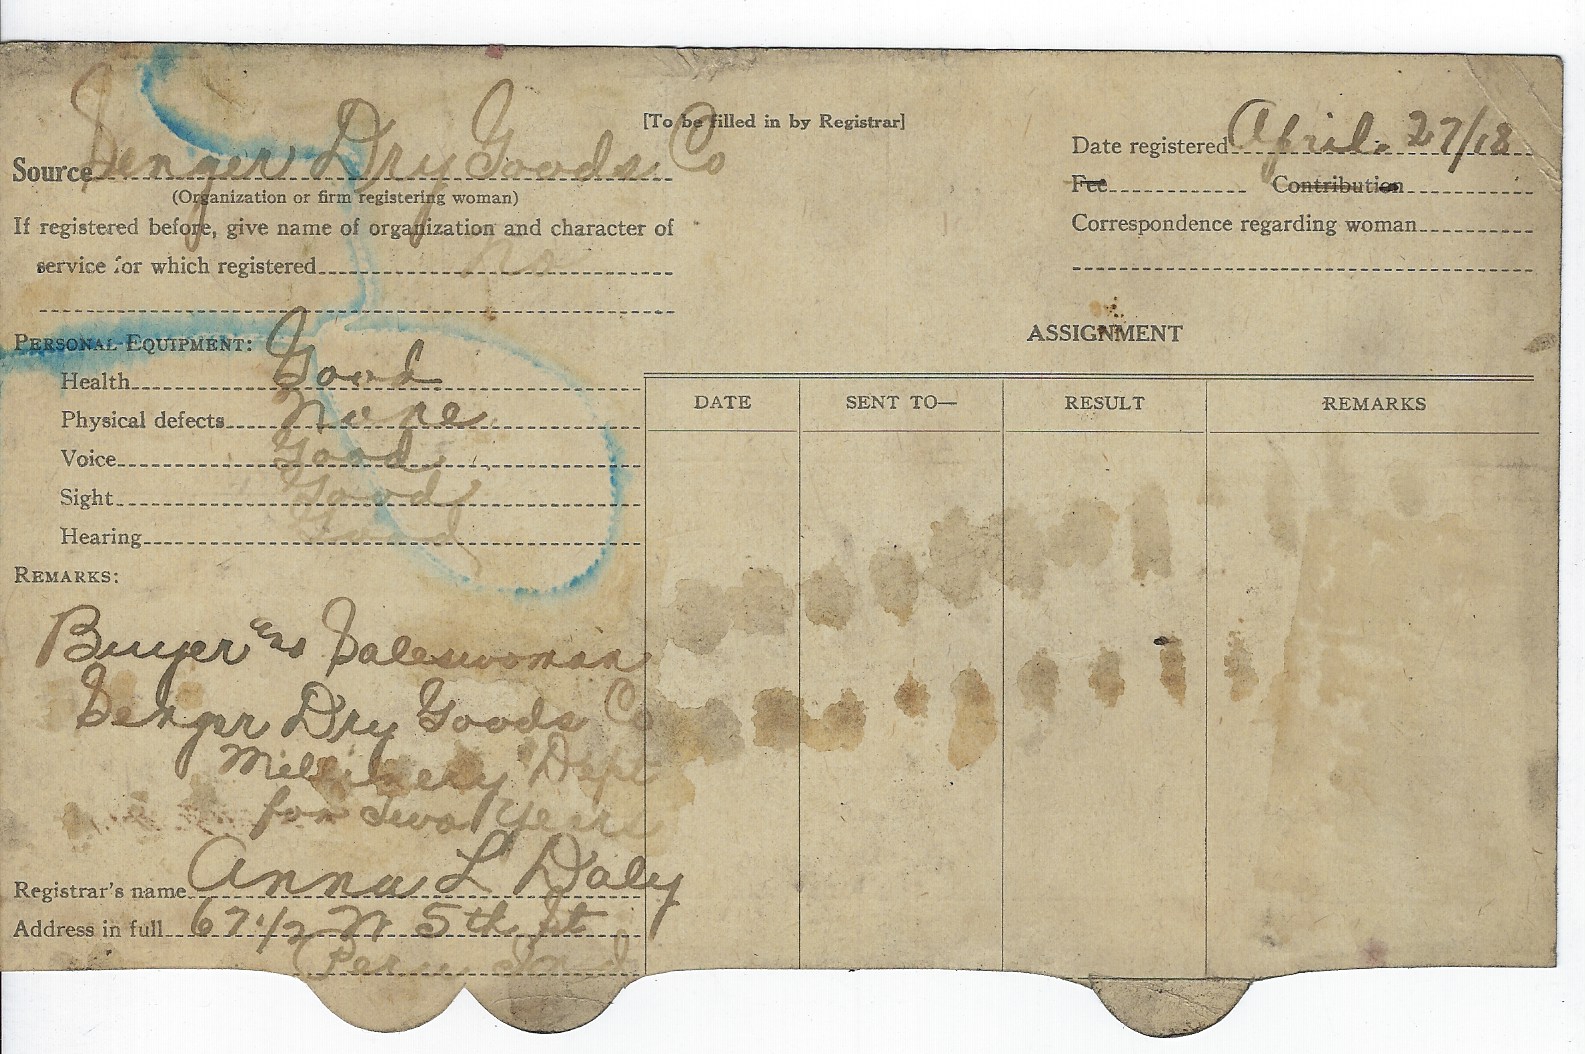 [To be filled in by Registrar]
Source Senger Dry Goods Co
(Organization or firm registering woman)
If registered before, give name of organization and character of
service for which registered no
Date registered April. 27/18
Fee Contribution
Correspondence regarding woman
PERSONAL EQUIPMENT:
Health Good
Physical defects None
Voice Good
Sight Good
Hearing Good
REMARKS:
Buyer and Saleswoman
Senger Dry Goods Co
Millinery Dept
for Two Years
Registrar's name Anna L Daly
Address in full 67 1/2 N 5th St
Peru Ind
ASSIGNMENT
DATE SENT TO— RESULT REMARKS